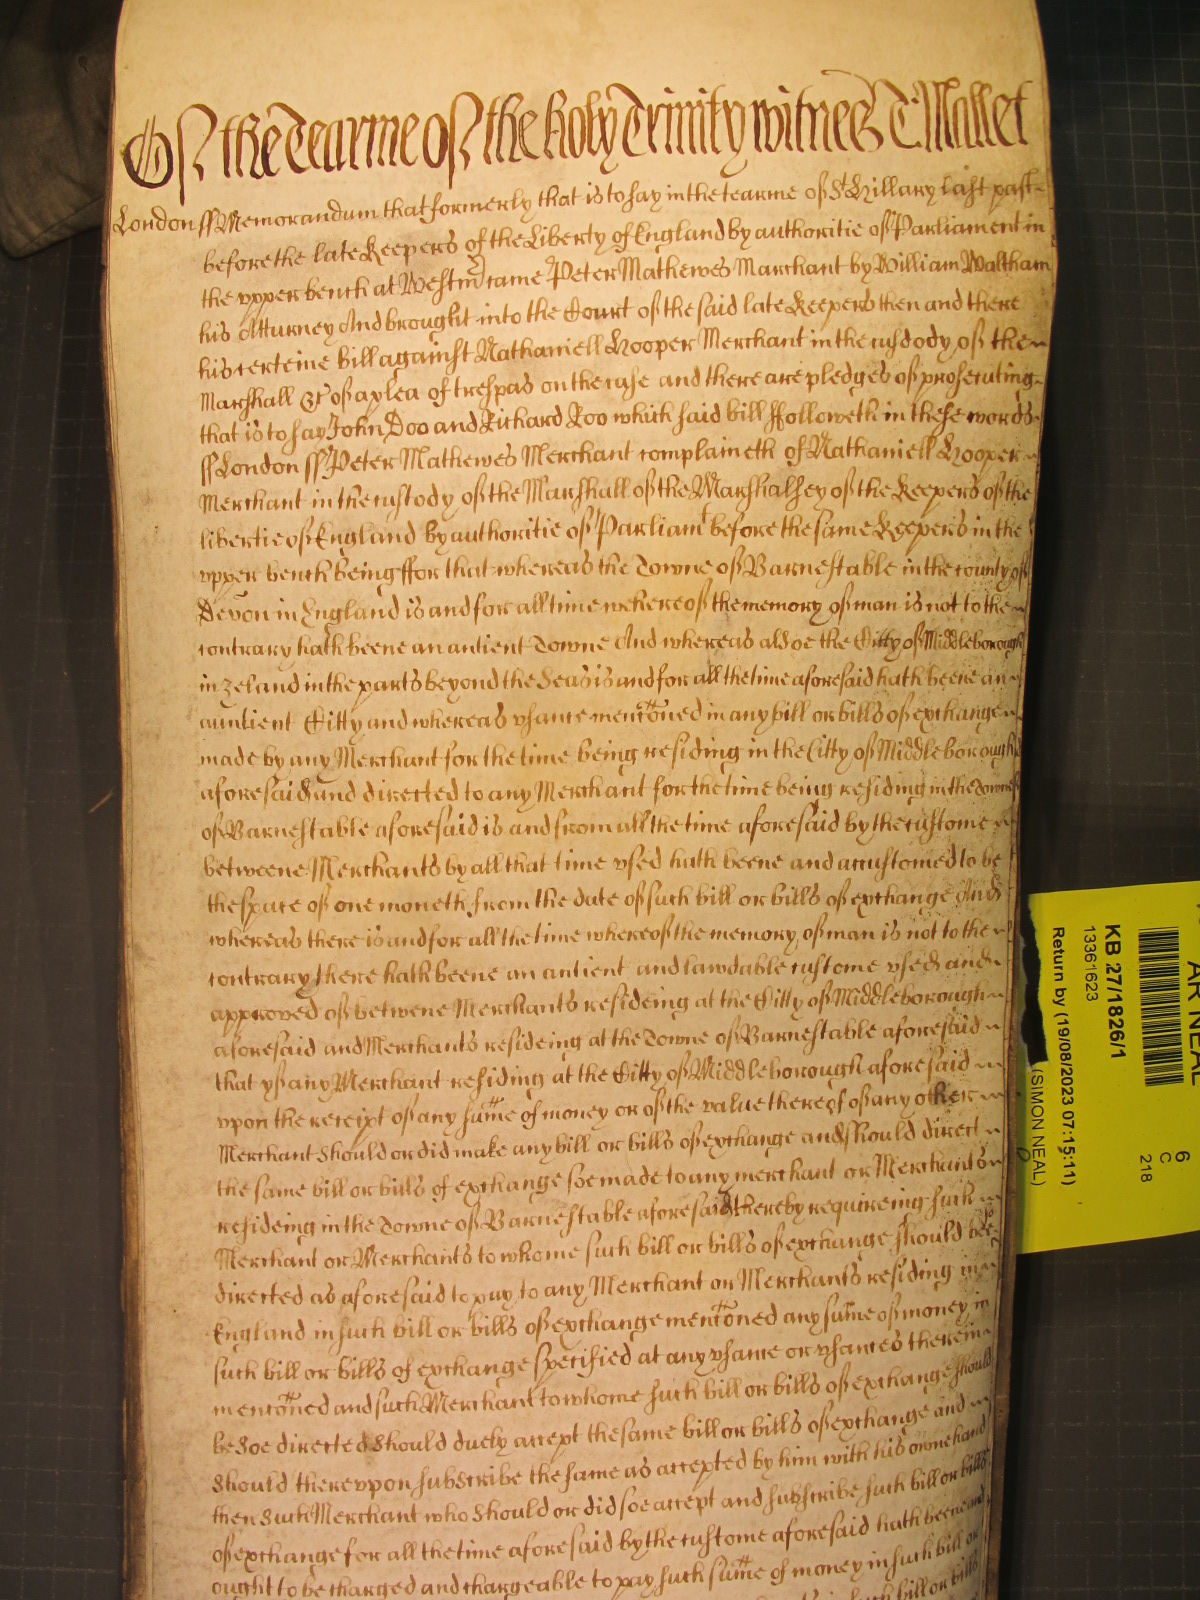 Of the Tearme of the holy Trinity witnes T: Mallet
London ss Memorandum that formerly that is to say in the tearme of St Hillary last past
before the late Keepers of the Liberty of England by authoritie of Parliament in
the vpper bench at Westm came Peter Mathewes Marchant by William Waltham
his Atturney And brought into the Court of the said late Keepers then and there
his certeine bill against Nathaniell Hooper Merchant in the custody of the
Marshall &c of a plea of trespas on the case and there are pledges of prosecuting
that is to say John Doo and Richard Roo which said bill ffolloweth in these words
ss London ss Peter Mathewes Merchant complaineth of Nathaniell Hooper
Merchant in the custody of the Marshall of the Marshalsey of the Keepers of the
libertie of England by authoritie of Parliamt before the same Keepers in the
vpper bench being ffor that whereas the Towne of Barnestable in the county of
Devon in England is and for all time whereof the memory of man is not to the
contrary hath beene an antient Towne And whereas alsoe the Citty of Middleborough
in Zeland in the parts beyond the Seas is and for all the time aforesaid hath beene an
auntient Citty and whereas vsance menconed in any bill or bills of exchange
made by any Merchant for the time being residing in the Citty of Middleborough
aforesaid and directed to any Merchant for the time being residing in the Towne
of Barnestable aforesaid is and from all the time aforesaid by the custome
betweene Merchants by all that time vsed hath beene and accustomed to be
the space of one moneth from the date of such bill or bills of exchange And
whereas there is and for all the time whereof the memory of man is not to the
contrary there hath beene an antient and lawdable custome vsed and
approved of betwene Merchants resideing at the Citty of Middleborough
aforesaid and Merchants resideing at the Towne of Barnestable aforesaid
that yf any Merchant residing at the Citty of Middleborough aforesaid
vpon the receipt of any sume of money or of the value thereof of any other
Merchant should or did make any bill or bills of exchange and should direct
the same bill or bills of exchange soe made to any merchant or Merchants
resideing in the Towne of Barnestable aforesaid thereby requireing such
Merchant or Merchants to whome such bill or bills of exchange should bee so
directed as aforesaid to pay to any Merchant or Merchants residing in
England in such bill or bills of exchange menconed any sume of money in
such bill or bills of exchange specified at any vsance or vsances therein
menconed and such Merchant to whome such bill or bills of exchange should
be soe directed should duely accept the same bill or bills of exchange and
should therevpon subscribe the same as accepted by him with his owne hand
then such Merchant who should or did soe accept and subscribe such bill or bills
of exchange for all the time aforesaid by the custome aforesaid hath beene and
ought to be charged and chargeable to pay such sume of money in such bill or
such bill or bills
AR NEAL
KB 27/1826/1
13361623
Return by (19/08/2023 07:15:11)
(SIMON NEAL)
6
C
218